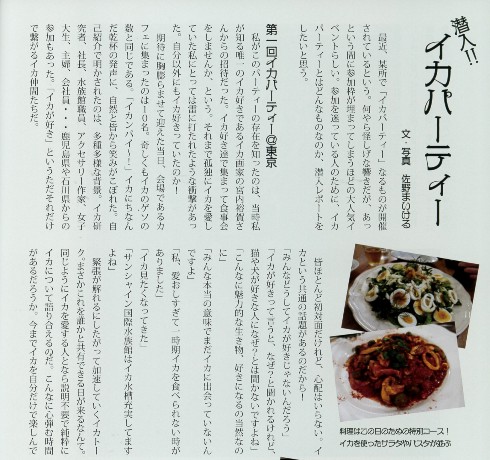 潜入!!
イカパーティー
文 写真 佐野まいける
最近、某所で「イカパーティー」なるものが開催
されているという。何やら怪しげな響きだが、あっ
という間に参加枠が埋まってしまうほどの大人気イ
ベントらしい。参加を迷っている人のために、イカ
パーティーとはどんなものなのか、潜入レポートを
したいと思う。
第一回イカパーティー@東京
私がこのパーティーの存在を知ったのは、当時私
が知る唯一のイカ好きであるイカ画家の宮内裕賀さ
んからの招待だった。イカ好き達で集まって食事会
をしませんか、という。それまで孤独にイカを愛し
ていた私にとっては雷に打たれたような衝撃があっ
た。自分以外にもイカ好きっていたのか！
期待に胸膨らませて迎えた当日、会場であるカ
フェに集まったのは10名。奇しくもイカのゲソの
数と同じである。「イカンパーイ！」イカにちなん
だ乾杯の発声に、自然と皆から笑みがこぼれた。自
己紹介で明かされたのは、多種多様な背景。イカ研
究者、社長、水族館職員、アクセサリー作家、女子
大生、主婦、会社員・・・鹿児島県や石川県からの
参加もあった。「イカが好き」というただそれだけ
で繋がるイカ仲間たちだ。
皆ほとんど初対面だけれど、心配はいらない。イ
カという共通の話題があるのだから！
「みんなどうしてイカが好きじゃないんだろう」
「イカが好きって言うと、なぜ？と聞かれるけれど、
猫や犬が好きな人になぜ？とは聞かないですよね」
「こんなに魅力的な生き物、好きになるの当然なの
に」
「みんな本当の意味でまだイカに出会っていないん
ですよ」
「私、愛おしすぎて一時期イカを食べられない時が
ありました」
「イカ見たくなってきた」
「サンシャイン国際水族館はイカ水槽充実してます
よね」
緊張が解れるにしたがって加速していくイカトー
ク。まさかこれを誰かと共有できる日が来るなんて。
同じようにイカを愛する人となら説明不要で純粋に
イカについて語り合えるのだ。こんなに心弾む時間
があるだろうか。今までイカを自分だけで楽しんで
料理はこの日のための特別コース！
イカを使ったサラダやパスタが並ぶ